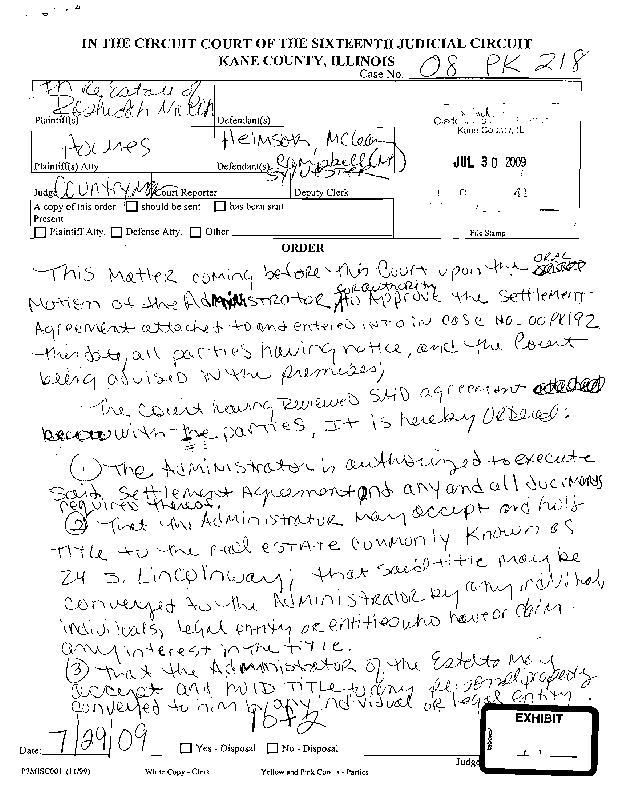 IN THE CIRCUIT COURT OF THE SIXTEENTH JUDICIAL CIRCUIT
KANE COUNTY, ILLINOIS
Case No. 08 PK 218
In re Estate of
Plaintiff(s)
Defendant(s)
Heimson, McLean
Campbell
SYLVESTER
Plaintiff(s) Atty
Defendant(s)
Kane County, IL
JUL 30 2009
File Stamp
Judge Countryman
Court Reporter
Deputy Clerk
A copy of this order should be sent has been sent
Present
Plaintiff Atty. Defense Atty. Other
ORDER
This Matter coming before this Court upon the ORAL
Motion of the Administrator for authority to Approve the Settlement
Agreement attached to and entered into in case No. 00PK192
this date, all parties having notice, and the Court
being advised in the premises,
The Court having Reviewed said agreement
with the parties, It is hereby Ordered:
(1) The Administrator is authorized to execute
said Settlement Agreement and any and all documents
required thereof.
(2) That the Administrator may accept and hold
TITLE to the real estate commonly known as
24 S. Lincolnway; that said title may be
conveyed to the Administrator by any individual,
individuals, legal entity or entities who have or claim
any interest in the title.
(3) That the Administrator of the Estate may
accept and hold TITLE to any personal property
conveyed to him by any individual or legal entity.
1 of 2
Date: 7/29/09
Yes - Disposal No - Disposal
Judge
EXHIBIT
P7MISC001 (11/99)
White Copy - Clerk
Yellow and Pink Copies - Parties